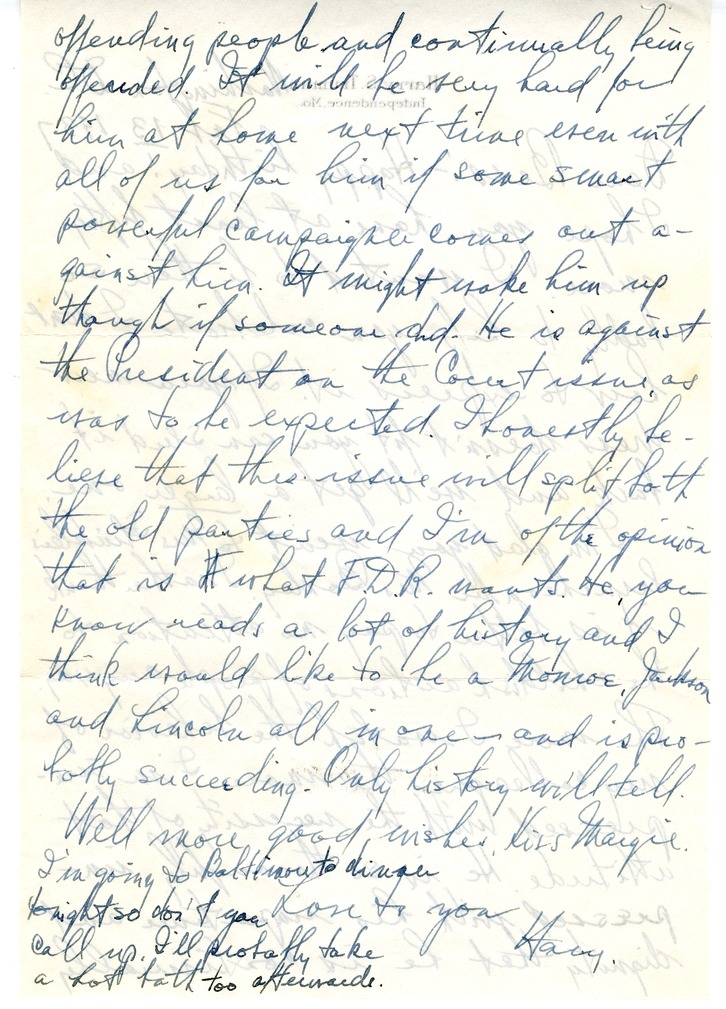 offending people and continually being
offended. It will be very hard for
him at home next time even with
all of us for him if some smart
powerful campaigner comes out a-
gainst him. It might wake him up
though if someone did. He is against
the President on the Court issue, as
was to be expected. I honestly be-
lieve that this issue will split both
the old parties and I'm of the opinion
that is what F.D.R. wants. He, you
know reads a lot of history and I
think would like to be a Monroe, Jackson
and Lincoln all in one - and is pro-
bably succeeding. Only history will tell.
Well more good wishes, Kiss Margie.
Love to you
Harry.
I'm going to Baltimore to dinner
tonight so don't you
call up. I'll probably take
a hot bath too afterwards.